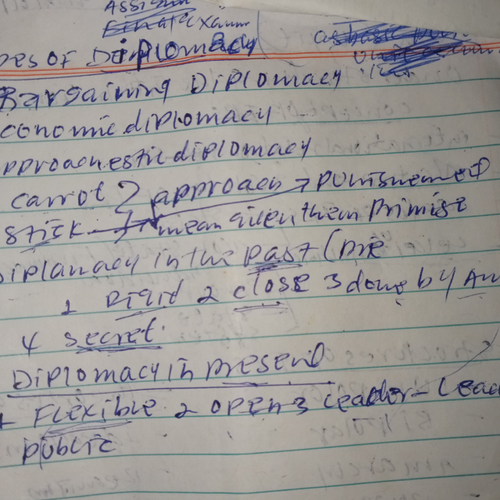 Assign
pes of Diplomacy
Bargaining Diplomacy
conomic diplomacy
pproachestic diplomacy
carrot } approach → punishment
stick → mean given them promise
Diplamacy in the past (pre
1 Rigid 2 close 3 done by Am
4 secret.
Diplomacy in present
1 Flexible 2 open 3 leader-Lead
public